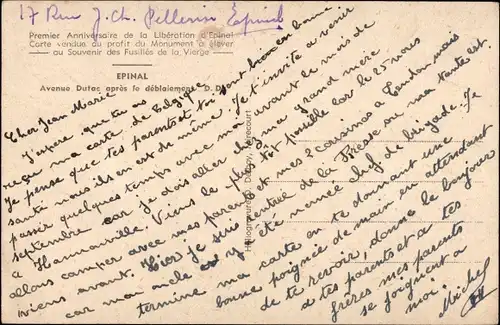 17 Rue J. Ch. Pellerin Epinal
Premier Anniversaire de la Libération d'Epinal
Carte vendue au profit du Monument à élever
au Souvenir des Fusillés de la Vierge
EPINAL
Avenue Dutac après le déblaiement D. D.
Cher Jean Marie
J'espère que tu as
reçu ma carte de Belgique
Je pense que tes parents et toi sont bien en bonne
santé nous il en est de même. Je t'invite a venir
passer quelques temps avec moi avant le mois de
septembre car je dois aller chez ma grand mère
a Hannarville. Viens le plus tot possible car le 25 nous
allons camper avec mes parents et mes 2 cousins a mais
viens avant. Hier je suis rentrée de la ou ma tante est
car mon oncle y a été nommé chef de brigade. Je
termine ma carte en te donnant une
bonne poignée de main en attendant
de te revoir, donne le bonjour
a tes parents et a tes
frères mes parents
se joignent a
moi.
Michel